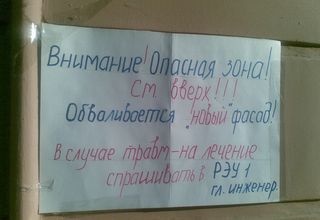 Внимание! Опасная зона!
См вверх!!!
Обваливается "новый" фасад!
В случае травм-на лечение
спрашивать в РЭУ 1
гл. инженер.